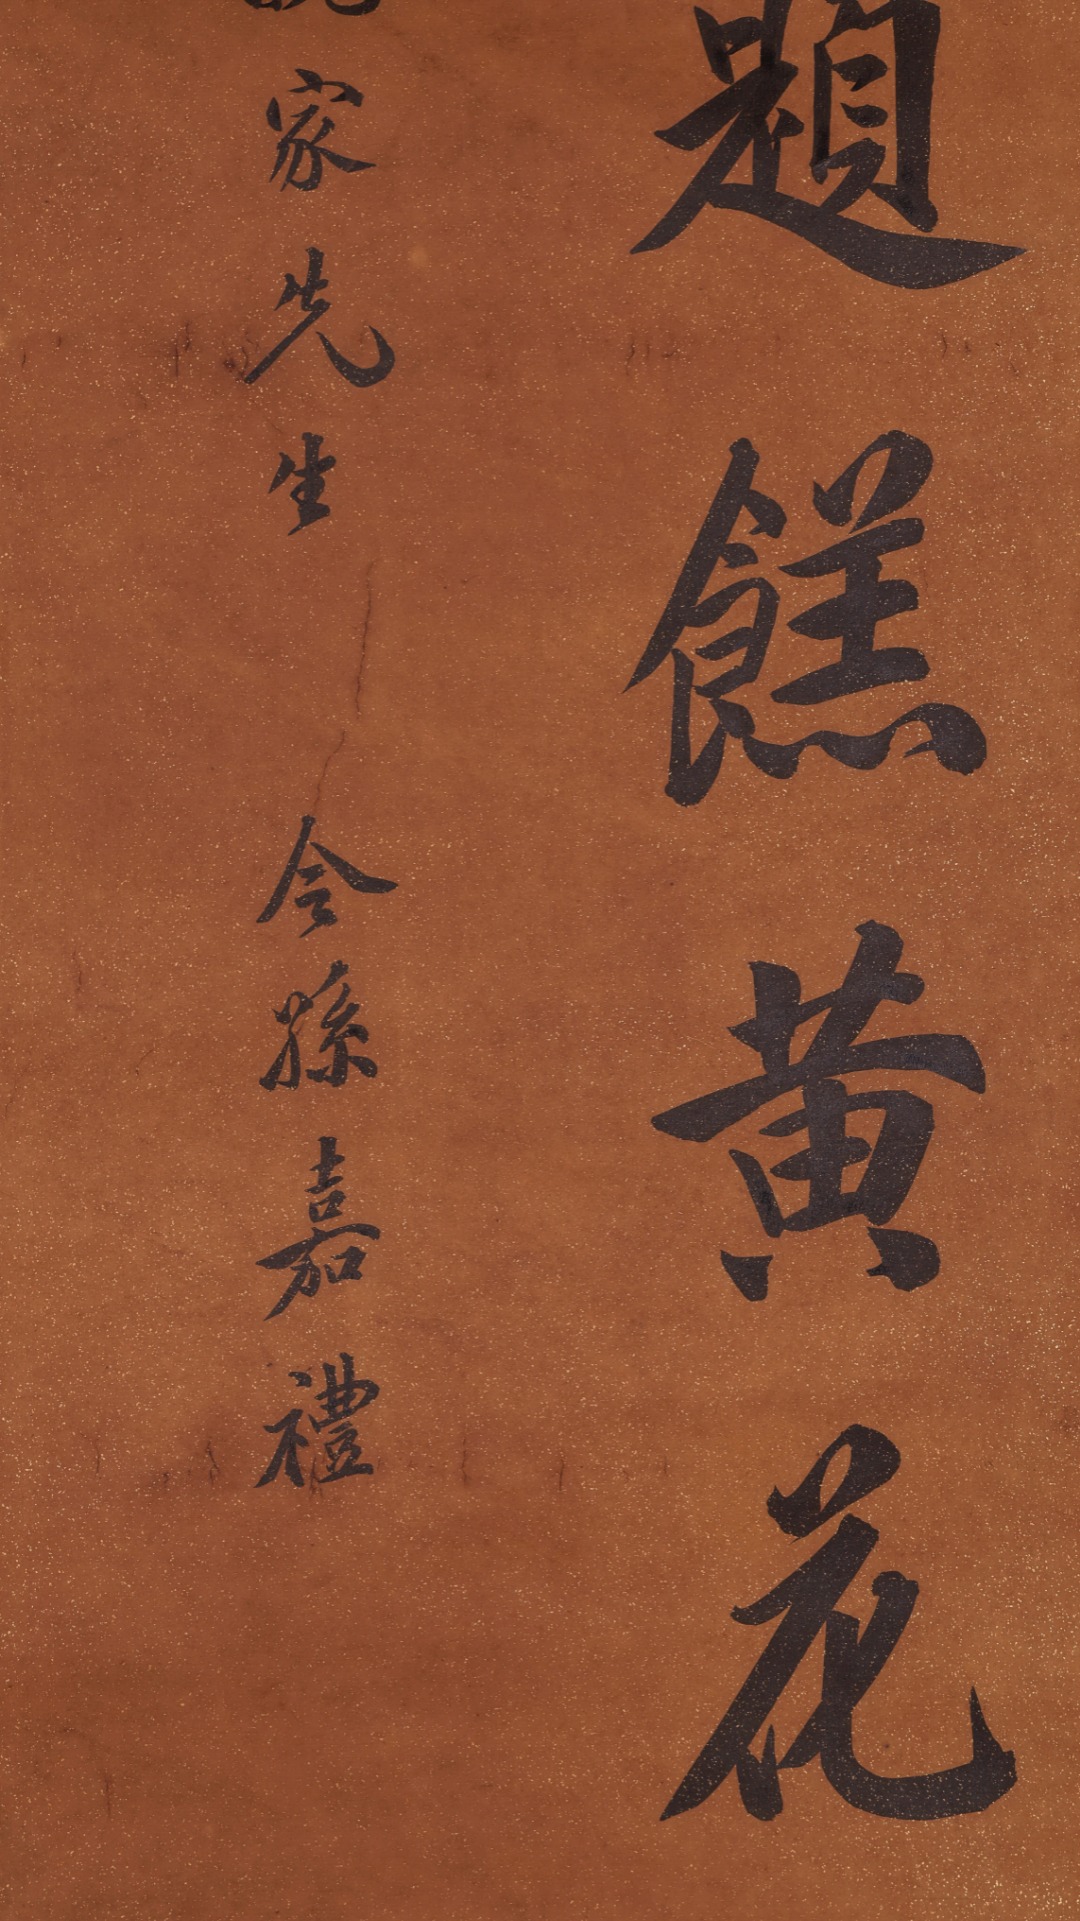 題餻黄花
家先生 令孫嘉禮